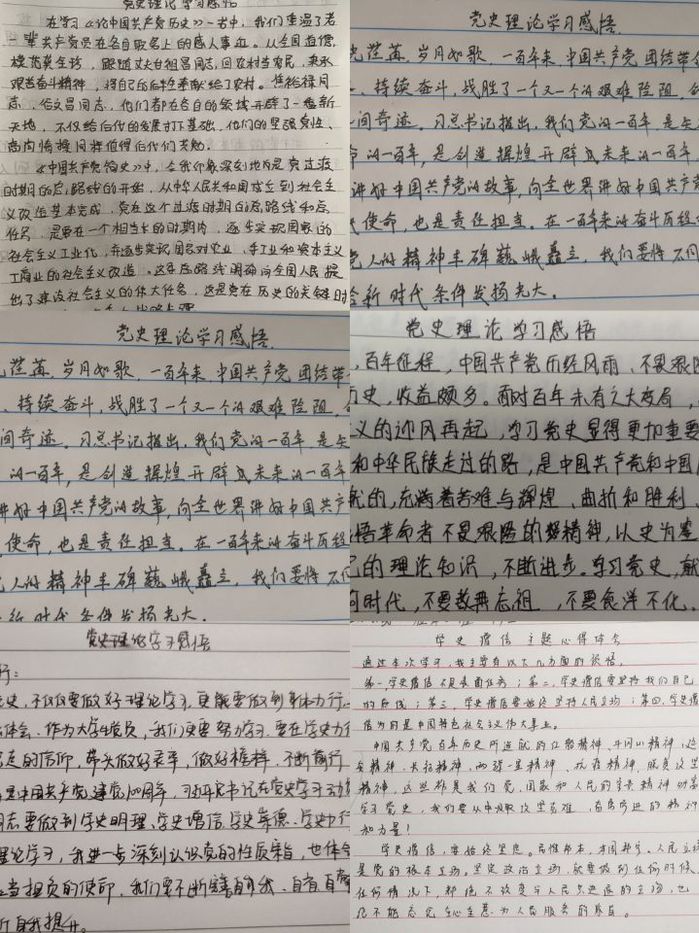 党史理论学习感悟
在学习《论中国共产党历史》一书中,我们重温了老
一辈共产党员在各自岗位上的感人事迹。从全国道德
模范龚全珍,跟随丈夫甘祖昌同志,回农村当农民,秉承
艰苦奋斗精神,将自己的后半生奉献给了农村。焦裕禄同
志,谷文昌同志,他们都在各自的领域开辟了一番新
天地,不仅给后代的发展打下基础,他们的坚强党性、
高尚情操同样值得后代们去勉。
《中国共产党简史》中,令我印象深刻地方是 党过渡
时期的总路线的开始,从中华人民共和国成立到社会主
义改造基本完成,党在这个过渡时期的总路线和总
任务,是要在一个相当长的时期内,逐步实现国家的
社会主义工业化,并逐步实现国家对农业、手工业和资本主义
工商业的社会主义改造。这条总路线明确向全国人民提
出了建设社会主义的伟大任务,这是党在历史的关键时
党史理论学习感悟.
光荏苒,岁月如歌,一百年来,中国共产党团结带
、持续奋斗,战胜了一个又一个的艰难险阻,
间奇迹。习总书记指出,我们党的一百年,是矢
的一百年,是创造辉煌 开辟未来的一百年
讲好中国共产党的故事,向全世界讲好中国共产
使命,也是责任担当。在一百年来的奋斗历
人的精神丰碑巍峨矗立,我们要将不同
新时代条件发扬光大。
党史理论学习感悟.
光荏苒,岁月如歌,一百年来,中国共产党团结带
、持续奋斗,战胜了一个又一个的艰难险阻,
间奇迹。习总书记指出,我们党的一百年,是矢
的一百年,是创造辉煌 开辟未来的一百年
讲好中国共产党的故事,向全世界讲好中国共产
使命,也是责任担当。在一百年来的奋斗历经
人的精神丰碑巍峨矗立,我们要将不同
新时代条件发扬光大。
党史理论学习感悟
,百年征程,中国共产党历经风雨、不畏艰险
历史,收益颇多。面对百年未有之大变局,
义的迎风再起,学习党史显得更加重要
和中华民族走过的路,是中国共产党和中国
就的,充满着苦难与辉煌、曲折和胜利、
悟革命者不畏艰险的精神,以史为鉴
己的理论知识,不断进步。学习党史,就
时代,不要数典忘祖,不要食洋不化,
党史理论学习感悟
行:
史,不仅仅要做好理论学习,更能要做到身体力行
体会。作为大学生党员,我们更要努力学习,要在学史力行
定的信仰,带头做好表率,做好榜样,不断前行
是中国共产党建党100周年,习近平书记在党史学习
志要做到学史明理、学史增信、学史崇德、学史力行
理论学习,我进一步深刻认识党的性质宗旨,也体会
当担负的使命,我们要不断完善自我、自省自
断自我提升。
学史增信 主题心得体会
通过本次学习,我主要有以下几方面的认悟。
第一,学史增信不是表面任务;第二,学史增信要坚持我们自己
的历线;第三,学史增信要始终坚持人民立场;第四,学史增
信为的是中国特色社会主义伟大事业。
中国共产党百年历史所造就的红船精神、井冈山精神、延
安精神、长征精神、两弹一星精神、抗疫精神、脱贫攻坚
精神,这些都是我们党、国家和人民的宝贵精神财富
学习党史,我们要从中汲取攻坚克难、奋勇前进的精神
和力量!
学史增信,要始终坚定。民惟邦本,本固邦宁。人民立场
是党的根本立场。坚定政治立场,就要做到任何时候
任何情况下,都绝不改变与人民共进退的立场,也
绝不能忘记全心全意为人民服务的宗旨。